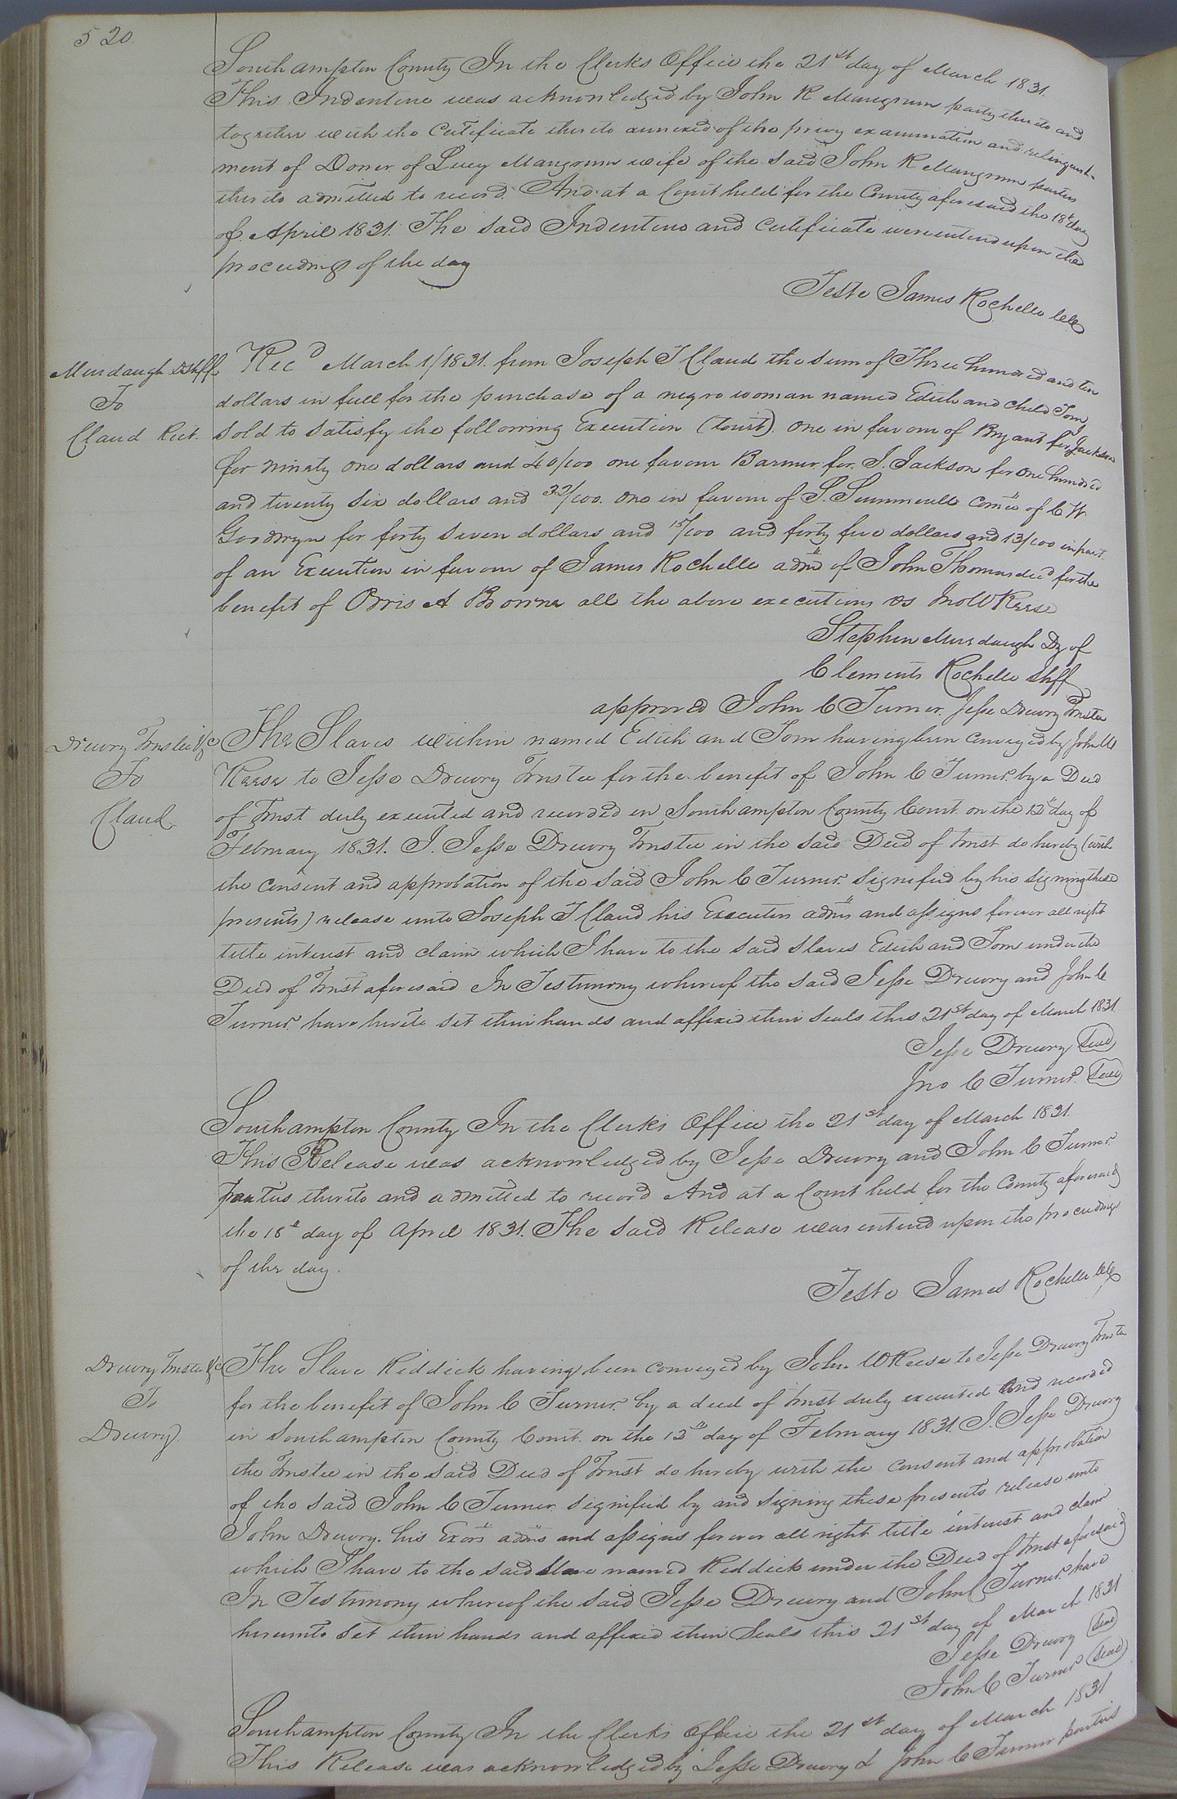 520
Southampton County In the Clerks Office the 21st day of March 1831.
This Indenture was acknowledged by John R Mangrum party thereto and
together with the Certificate thereto annexed of the privy examination and relinquish-
ment of Dower of Lucy Mangrum wife of the said John R Mangrum parties
thereto admitted to record. And at a Court held for the County aforesaid the 18th day
of April 1831. The said Indenture and Certificate were entered upon the
proceedings of the day
Teste James Rochelle
Murdaugh D Shff
To
Claud Rect.
Recd March 1/1831. from Joseph T Claud the sum of Three hundred and ten
dollars in full for the purchase of a negro woman named Edith and child Tom
sold to satisfy the following Execution (towit). one in favour of Bryant for Jackson
for ninety one dollars and 40/100 one favour Barmer for J. Jackson for one hundred
and twenty six dollars and 33/100. one in favour of S. Summerell of C W.
Goodwyn for forty seven dollars and 15/100 and forty five dollars and 13/100 in part
of an Execution in favour of James Rochelle admr of John Thomas decd for the
benefit of Orris A Browne all the above executions vs Jno W Reese
Stephen Murdaugh Dy of
Clements Rochelle Shff
approved John C Turner. Jesse Drewry Trustee
Drewry Trustee &c
To
Claud
The Slaves within named Edith and Tom having been conveyed by John W
Reese to Jesse Drewry Trustee for the benefit of John C Turner by a Deed
of Trust duly executed and recorded in Southampton County Court on the 12th day of
February 1831. I. Jesse Drewry Trustee in the said Deed of Trust do hereby (with
the consent and approbation of the said John C Turner. signified by his signing these
presents) release unto Joseph T Claud his Executors admrs and assigns forever all right
title interest and claim which I have to the said slaves Edith and Tom under the
Deed of Trust aforesaid In Testimony whereof the said Jesse Drewry and John C
Turner have hereto set their hands and affixed their seals this 21st day of March 1831
Jesse Drewry Seal
Jno C Turner. Seal
Southampton County In the Clerks Office the 21st day of March 1831.
This Release was acknowledged by Jesse Drewry and John C Turner
parties thereto and admitted to record And at a Court held for the County aforesaid
the 18th day of April 1831. The said Release was entered upon the proceedings
of the day.
Teste James Rochelle
Drewry Trustee &c
To
Drewry
The Slave Riddick having been conveyed by John W Reese to Jesse Drewry Trustee
for the benefit of John C Turner. by a deed of Trust duly executed and recorded
in Southampton County Court. on the 12th day of February 1831 I. Jesse Drewry
the Trustee in the said Deed of Trust do hereby with the consent and approbation
of the said John C Turner signified by and signing these presents release unto
John Drewry. his Exors admrs and assigns forever all right title interest and claim
which I have to the said slave named Riddick under the Deed of Trust aforesaid
In Testimony whereof the said Jesse Drewry and John C Turner have
hereunto set their hands and affixed their Seals this 21st day of March 1831
Jesse Drewry Seal
John C Turner Seal
Southampton County In the Clerks Office the 21st day of March 1831
This Release was acknowledged by Jesse Drewry & John C Turner parties